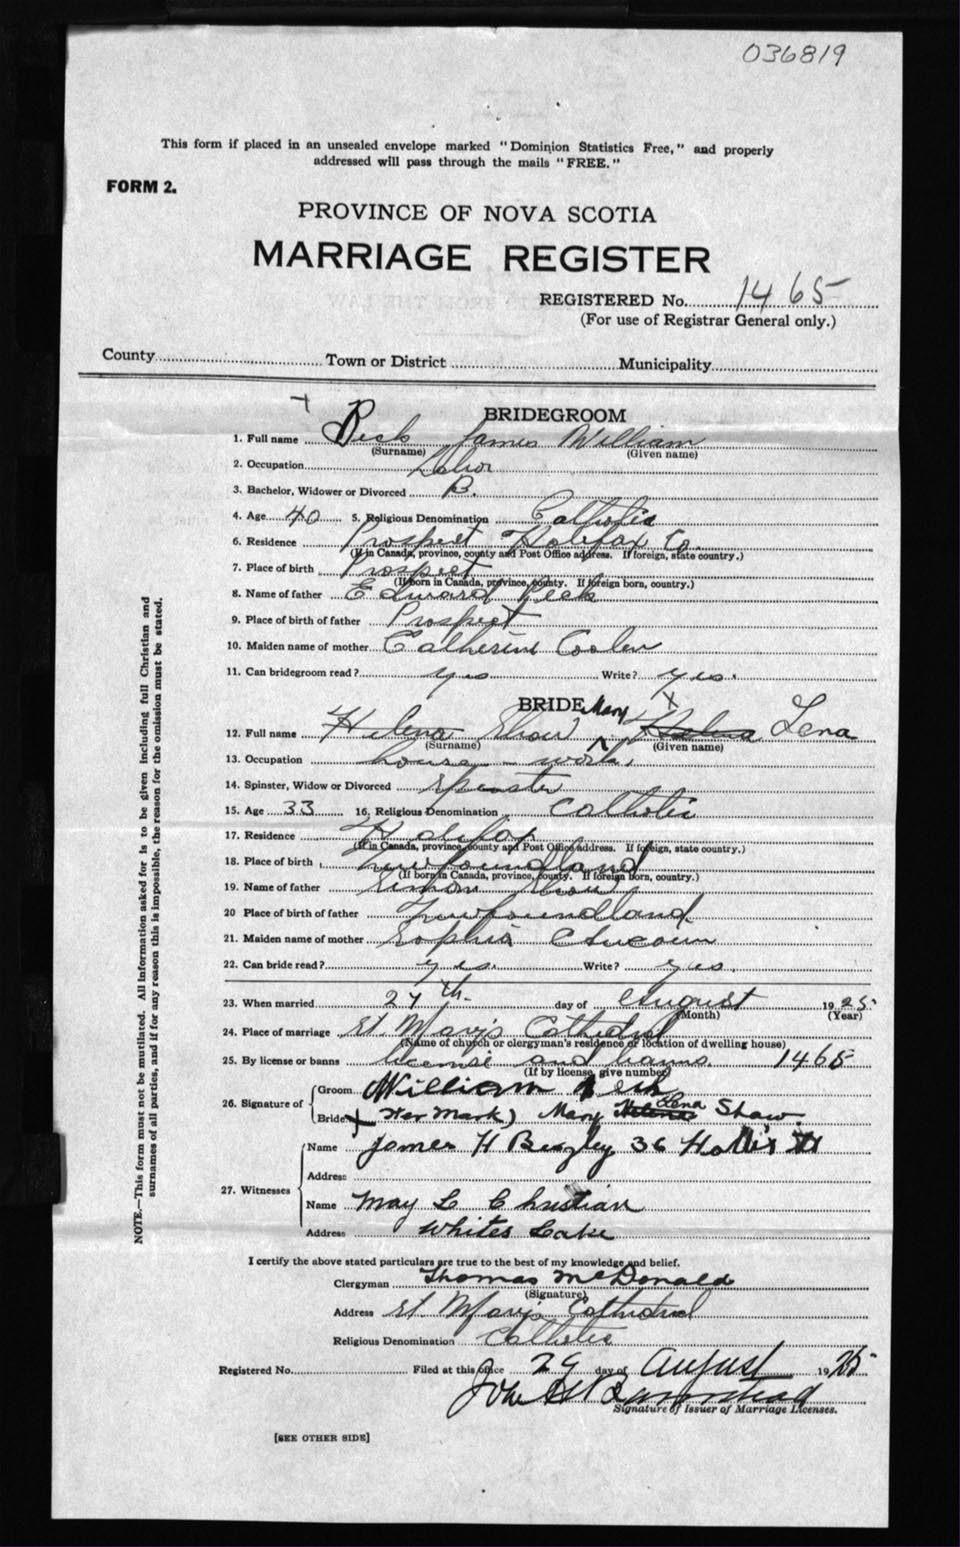 036819
This form if placed in an unsealed envelope marked "Dominion Statistics Free," and properly
addressed will pass through the mails "FREE."
FORM 2.
PROVINCE OF NOVA SCOTIA
MARRIAGE REGISTER
REGISTERED No. 1465
(For use of Registrar General only.)
County Town or District Municipality
BRIDEGROOM
1. Full name Peck James William
(Surname) (Given name)
2. Occupation Labor
3. Bachelor, Widower or Divorced B.
4. Age 40 5. Religious Denomination Catholic
6. Residence Prospect Halifax Co.
(If in Canada, province, county and Post Office address. If foreign, state country.)
7. Place of birth Prospect
(If born in Canada, province, county. If foreign born, country.)
8. Name of father Edward Peck
9. Place of birth of father Prospect
10. Maiden name of mother Catherine Coolen
11. Can bridegroom read? yes Write? yes.
BRIDE Mary X
12. Full name Helena Shaw Helena Lena
(Surname) (Given name)
13. Occupation house-work.
14. Spinster, Widow or Divorced Spinster
15. Age 33 16. Religious Denomination Catholic
17. Residence Halifax
(If in Canada, province, county and Post Office address. If foreign, state country.)
18. Place of birth Newfoundland
(If born in Canada, province, county. If foreign born, country.)
19. Name of father Simon Shaw
20 Place of birth of father Newfoundland.
21. Maiden name of mother Sophia
22. Can bride read? yes. Write? yes.
23. When married 27th. day of August 1925
(Month) (Year)
24. Place of marriage St. Mary's Cathedral
(Name of church or clergyman's residence or location of dwelling house)
25. By license or banns license and banns. 1465
(If by license, give number)
26. Signature of Groom William Peck
Bride X Her Mark) Mary Helena Lena Shaw
27. Witnesses Name James H 36 Hollis St
Address
Name May L Christian
Address Whites Lake
I certify the above stated particulars are true to the best of my knowledge and belief.
Clergyman Thomas McDonald
(Signature)
Address St. Mary's Cathedral
Religious Denomination Catholic
Registered No. Filed at this office 29 day of August 1925
John
Signature of Issuer of Marriage Licenses.
[SEE OTHER SIDE]
NOTE.—This form must not be mutilated. All information asked for is to be given including full Christian and
surnames of all parties, and if for any reason this is impossible, the reason for the omission must be stated.